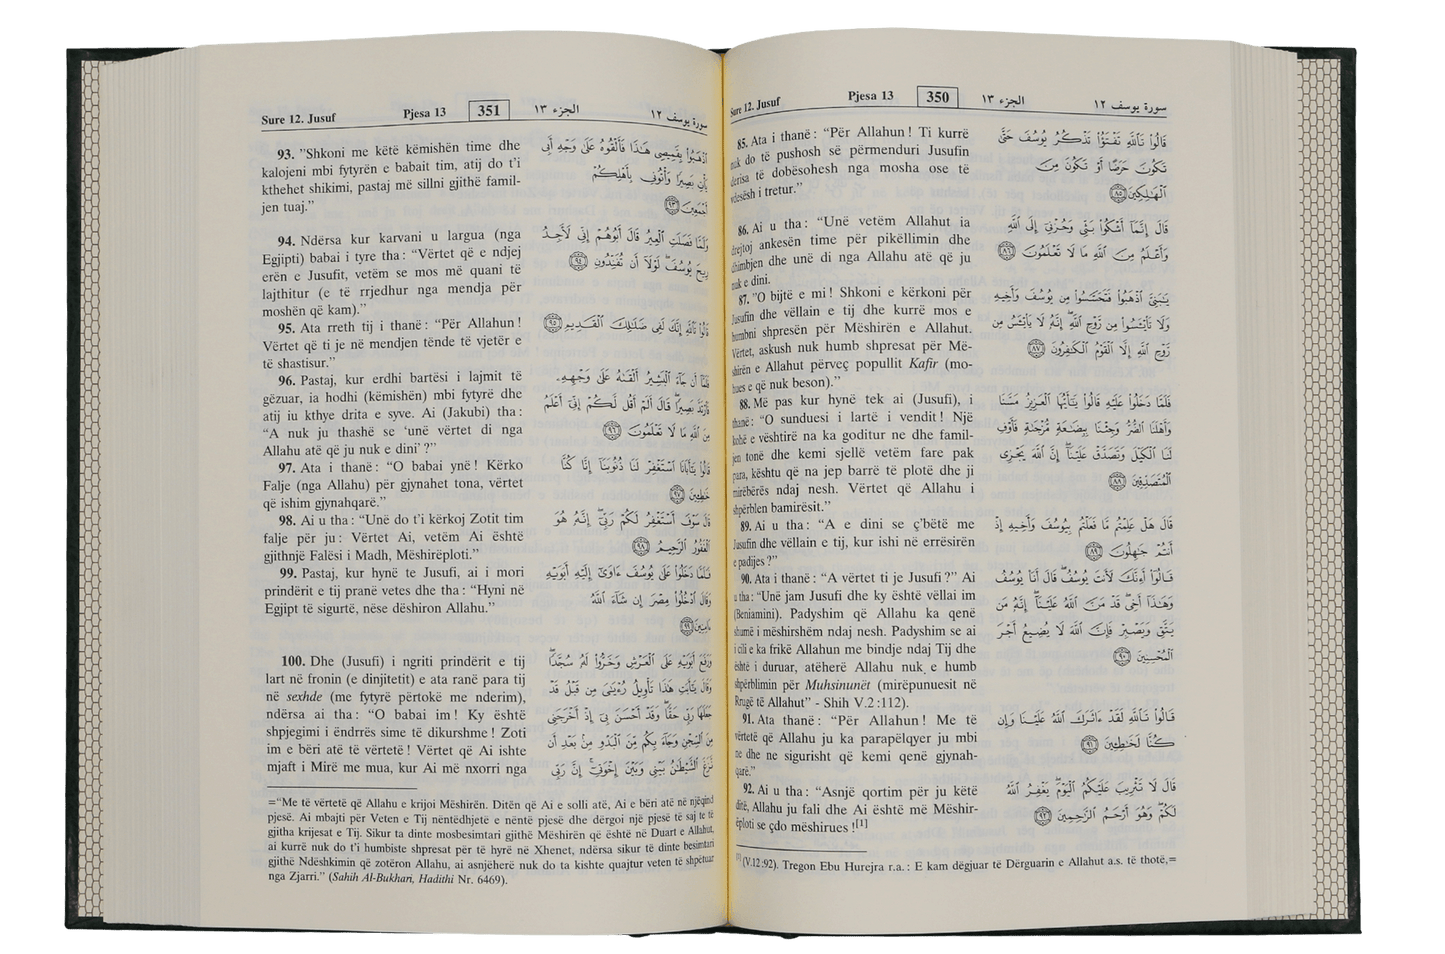 Sure 12. Jusuf Pjesa 13 350 الجزء ١٣ سورة يوسف ١٢
85. Ata i thanë: “Për Allahun! Ti kurrë
nuk do të pushosh së përmenduri Jusufin
derisa të dobësohesh nga mosha ose të
vdesësh i tretur.”
86. Ai u tha: “Unë vetëm Allahut ia
drejtoj ankesën time për pikëllimin dhe
dhimbjen dhe unë di nga Allahu atë që ju
nuk e dini.
87. "O bijtë e mi! Shkoni e kërkoni për
Jusufin dhe vëllain e tij dhe kurrë mos e
humbni shpresën për Mëshirën e Allahut.
Vërtet, askush nuk humb shpresat për Më-
shirën e Allahut përveç popullit Kafir (mo-
hues e që nuk beson).”
88. Më pas kur hynë tek ai (Jusufi), i
thanë: “O sunduesi i lartë i vendit! Një
kohë e vështirë na ka goditur ne dhe famil-
jen tonë dhe kemi sjellë vetëm fare pak
para, kështu që na jep barrë të plotë dhe ji
mirëbërës ndaj nesh. Vërtet që Allahu i
shpërblen bamirësit.”
89. Ai u tha: “A e dini se ç’bëtë me
Jusufin dhe vëllain e tij, kur ishi në errësirën
e padijes?”
90. Ata i thanë: “A vërtet ti je Jusufi?” Ai
u tha: “Unë jam Jusufi dhe ky është vëllai im
(Beniamini). Padyshim që Allahu ka qenë
shumë i mëshirshëm ndaj nesh. Padyshim se ai
i cili e ka frikë Allahun me bindje ndaj Tij dhe
është i duruar, atëherë Allahu nuk e humb
shpërblimin për Muhsinunët (mirëpunuesit në
Rrugë të Allahut” - Shih V.2:112).
91. Ata thanë: “Për Allahun! Me të
vërtetë që Allahu ju ka parapëlqyer ju mbi
ne dhe ne sigurisht që kemi qenë gjynah-
qarë.”
92. Ai u tha: “Asnjë qortim për ju këtë
ditë, Allahu ju fali dhe Ai është më Mëshir-
ëploti se çdo mëshirues![1]
قَالُوا۟ تَٱللَّهِ تَفْتَؤُا۟ تَذْكُرُ يُوسُفَ حَتَّىٰ
تَكُونَ حَرَضًا أَوْ تَكُونَ مِنَ
ٱلْهَٰلِكِينَ ٨٥
قَالَ إِنَّمَآ أَشْكُوا۟ بَثِّى وَحُزْنِىٓ إِلَى ٱللَّهِ
وَأَعْلَمُ مِنَ ٱللَّهِ مَا لَا تَعْلَمُونَ ٨٦
يَٰبَنِىَّ ٱذْهَبُوا۟ فَتَحَسَّسُوا۟ مِن يُوسُفَ وَأَخِيهِ
وَلَا تَا۟يْـَٔسُوا۟ مِن رَّوْحِ ٱللَّهِ إِنَّهُۥ لَا يَا۟يْـَٔسُ مِن
رَّوْحِ ٱللَّهِ إِلَّا ٱلْقَوْمُ ٱلْكَٰفِرُونَ ٨٧
فَلَمَّا دَخَلُوا۟ عَلَيْهِ قَالُوا۟ يَٰٓأَيُّهَا ٱلْعَزِيزُ مَسَّنَا
وَأَهْلَنَا ٱلضُّرُّ وَجِئْنَا بِبِضَٰعَةٍ مُّزْجَىٰةٍ فَأَوْفِ
لَنَا ٱلْكَيْلَ وَتَصَدَّقْ عَلَيْنَآ إِنَّ ٱللَّهَ يَجْزِى
ٱلْمُتَصَدِّقِينَ ٨٨
قَالَ هَلْ عَلِمْتُم مَّا فَعَلْتُم بِيُوسُفَ وَأَخِيهِ إِذْ
أَنتُمْ جَٰهِلُونَ ٨٩
قَالُوٓا۟ أَءِنَّكَ لَأَنتَ يُوسُفُ قَالَ أَنَا۠ يُوسُفُ
وَهَٰذَآ أَخِى قَدْ مَنَّ ٱللَّهُ عَلَيْنَآ إِنَّهُۥ مَن
يَتَّقِ وَيَصْبِرْ فَإِنَّ ٱللَّهَ لَا يُضِيعُ أَجْرَ
ٱلْمُحْسِنِينَ ٩٠
قَالُوا۟ تَٱللَّهِ لَقَدْ ءَاثَرَكَ ٱللَّهُ عَلَيْنَا وَإِن
كُنَّا لَخَٰطِـِٔينَ ٩١
قَالَ لَا تَثْرِيبَ عَلَيْكُمُ ٱلْيَوْمَ يَغْفِرُ ٱللَّهُ
لَكُمْ وَهُوَ أَرْحَمُ ٱلرَّٰحِمِينَ ٩٢
[1] (V.12:92). Tregon Ebu Hurejra r.a.: E kam dëgjuar të Dërguarin e Allahut a.s. të thotë,=
Sure 12. Jusuf Pjesa 13 351 الجزء ١٣ سورة يوسف ١٢
93. ”Shkoni me këtë këmishën time dhe
kalojeni mbi fytyrën e babait tim, atij do t’i
kthehet shikimi, pastaj më sillni gjithë famil-
jen tuaj.”
94. Ndërsa kur karvani u largua (nga
Egjipti) babai i tyre tha: “Vërtet që e ndjej
erën e Jusufit, vetëm se mos më quani të
lajthitur (e të rrjedhur nga mendja për
moshën që kam).”
95. Ata rreth tij i thanë: “Për Allahun!
Vërtet që ti je në mendjen tënde të vjetër e
të shastisur.”
96. Pastaj, kur erdhi bartësi i lajmit të
gëzuar, ia hodhi (këmishën) mbi fytyrë dhe
atij iu kthye drita e syve. Ai (Jakubi) tha:
“A nuk ju thashë se ‘unë vërtet di nga
Allahu atë që ju nuk e dini’?”
97. Ata i thanë: “O babai ynë! Kërko
Falje (nga Allahu) për gjynahet tona, vërtet
që ishim gjynahqarë.”
98. Ai u tha: “Unë do t’i kërkoj Zotit tim
falje për ju: Vërtet Ai, vetëm Ai është
gjithnjë Falësi i Madh, Mëshirëploti.”
99. Pastaj, kur hynë te Jusufi, ai i mori
prindërit e tij pranë vetes dhe tha: “Hyni në
Egjipt të sigurtë, nëse dëshiron Allahu.”
100. Dhe (Jusufi) i ngriti prindërit e tij
lart në fronin (e dinjitetit) e ata ranë para tij
në sexhde (me fytyrë përtokë me nderim),
ndërsa ai tha: “O babai im! Ky është
shpjegimi i ëndrrës sime të dikurshme! Zoti
im e bëri atë të vërtetë! Vërtet që Ai ishte
mjaft i Mirë me mua, kur Ai më nxorri nga
ٱذْهَبُوا۟ بِقَمِيصِى هَٰذَا فَأَلْقُوهُ عَلَىٰ وَجْهِ أَبِى
يَأْتِ بَصِيرًا وَأْتُونِى بِأَهْلِكُمْ
أَجْمَعِينَ ٩٣
وَلَمَّا فَصَلَتِ ٱلْعِيرُ قَالَ أَبُوهُمْ إِنِّى لَأَجِدُ
رِيحَ يُوسُفَ لَوْلَآ أَن تُفَنِّدُونِ ٩٤
قَالُوا۟ تَٱللَّهِ إِنَّكَ لَفِى ضَلَٰلِكَ ٱلْقَدِيمِ ٩٥
فَلَمَّآ أَن جَآءَ ٱلْبَشِيرُ أَلْقَىٰهُ عَلَىٰ وَجْهِهِۦ
فَٱرْتَدَّ بَصِيرًا قَالَ أَلَمْ أَقُل لَّكُمْ إِنِّىٓ أَعْلَمُ
مِنَ ٱللَّهِ مَا لَا تَعْلَمُونَ ٩٦
قَالُوا۟ يَٰٓأَبَانَا ٱسْتَغْفِرْ لَنَا ذُنُوبَنَآ إِنَّا كُنَّا
خَٰطِـِٔينَ ٩٧
قَالَ سَوْفَ أَسْتَغْفِرُ لَكُمْ رَبِّىٓ إِنَّهُۥ هُوَ
ٱلْغَفُورُ ٱلرَّحِيمُ ٩٨
فَلَمَّا دَخَلُوا۟ عَلَىٰ يُوسُفَ ءَاوَىٰٓ إِلَيْهِ أَبَوَيْهِ
وَقَالَ ٱدْخُلُوا۟ مِصْرَ إِن شَآءَ ٱللَّهُ
ءَامِنِينَ ٩٩
وَرَفَعَ أَبَوَيْهِ عَلَى ٱلْعَرْشِ وَخَرُّوا۟ لَهُۥ سُجَّدًا
وَقَالَ يَٰٓأَبَتِ هَٰذَا تَأْوِيلُ رُءْيَٰىَ مِن قَبْلُ قَدْ
جَعَلَهَا رَبِّى حَقًّا وَقَدْ أَحْسَنَ بِىٓ إِذْ أَخْرَجَنِى
مِنَ ٱلسِّجْنِ وَجَآءَ بِكُم مِّنَ ٱلْبَدْوِ مِنۢ بَعْدِ أَن
نَّزَغَ ٱلشَّيْطَٰنُ بَيْنِى وَبَيْنَ إِخْوَتِىٓ إِنَّ رَبِّى
=“Me të vërtetë që Allahu e krijoi Mëshirën. Ditën që Ai e solli atë, Ai e bëri atë në njëqind
pjesë. Ai mbajti për Veten e Tij nëntëdhjetë e nëntë pjesë dhe dërgoi një pjesë të saj te të
gjitha krijesat e Tij. Sikur ta dinte mosbesimtari gjithë Mëshirën që është në Duart e Allahut,
ai kurrë nuk do t’i humbiste shpresat për të hyrë në Xhenet, ndërsa sikur të dinte besimtari
gjithë Ndëshkimin që zotëron Allahu, ai asnjëherë nuk do ta kishte quajtur veten të shpëtuar
nga Zjarri.” (Sahih Al-Bukhari, Hadithi Nr. 6469).